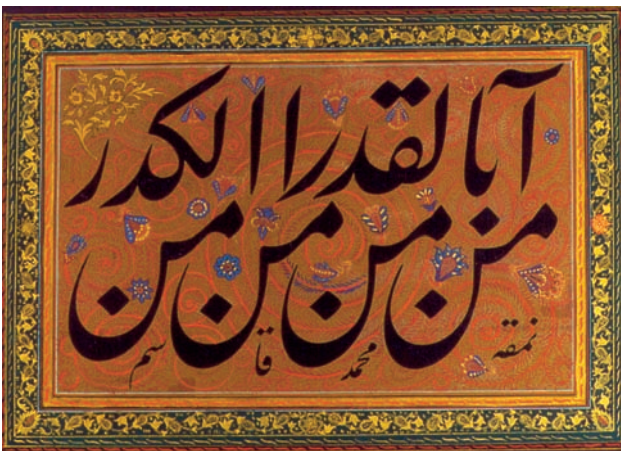 آ بالقدر ا الكدر
من من من من
نمقه محمد قاسم